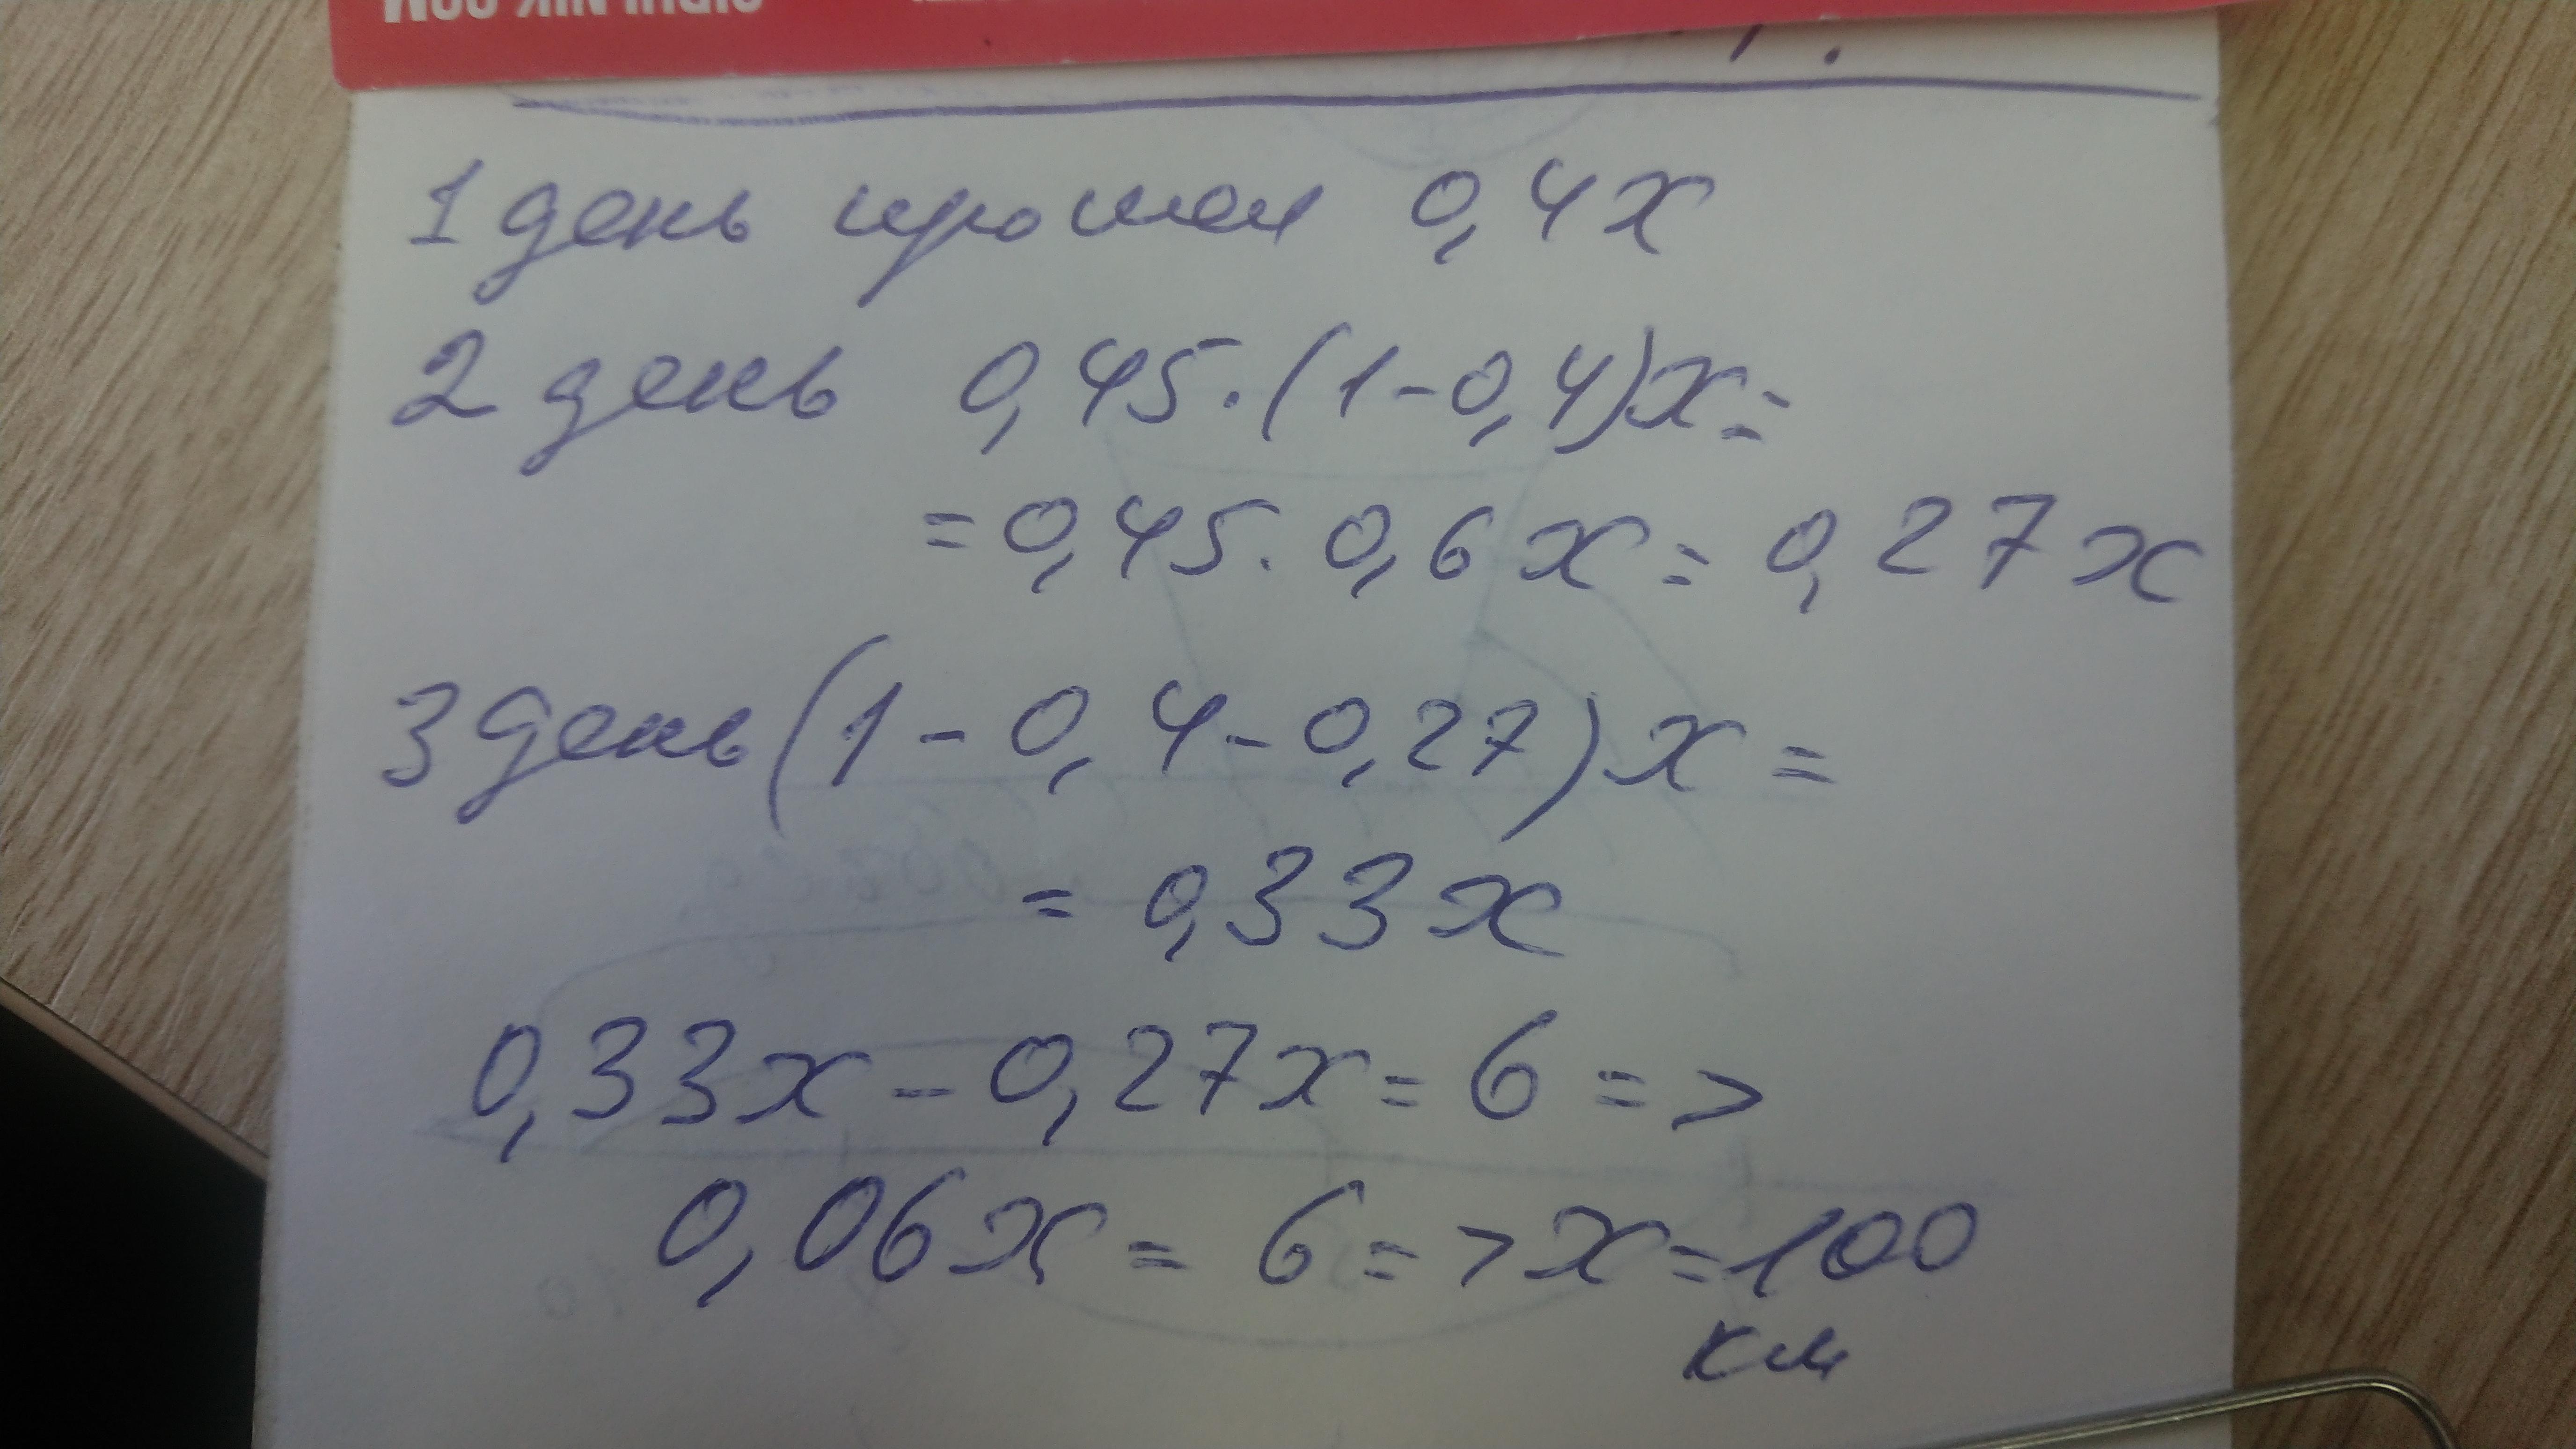 1 день прошел 0,4x
2 день 0,45·(1-0,4)x=
=0,45·0,6x=0,27x
3 день (1-0,4-0,27)x=
= 0,33x
0,33x-0,27x=6=>
0,06x=6=>x=100
км